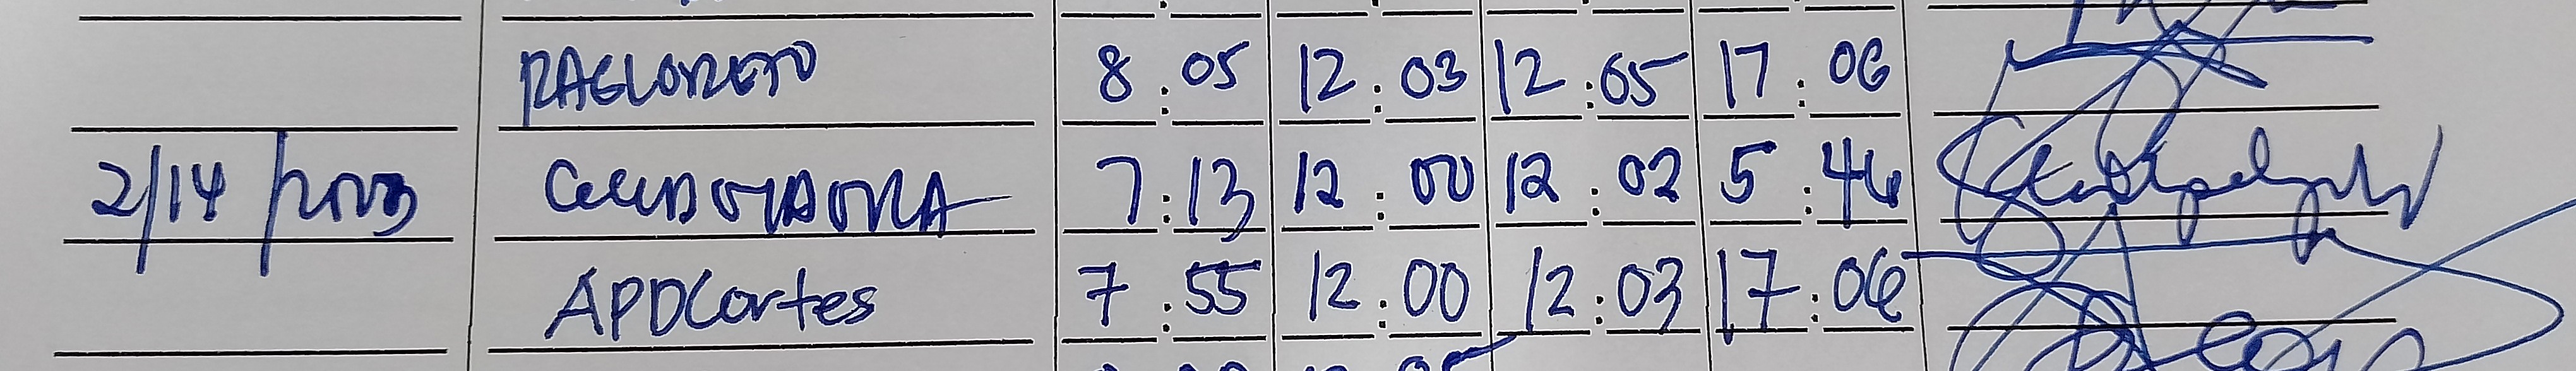 RAGLORETO 8:05 12:03 12:05 17:06
2/14/2023 7:13 12:00 12:02 5:46
APDCortes 7:55 12:00 12:03 17:06